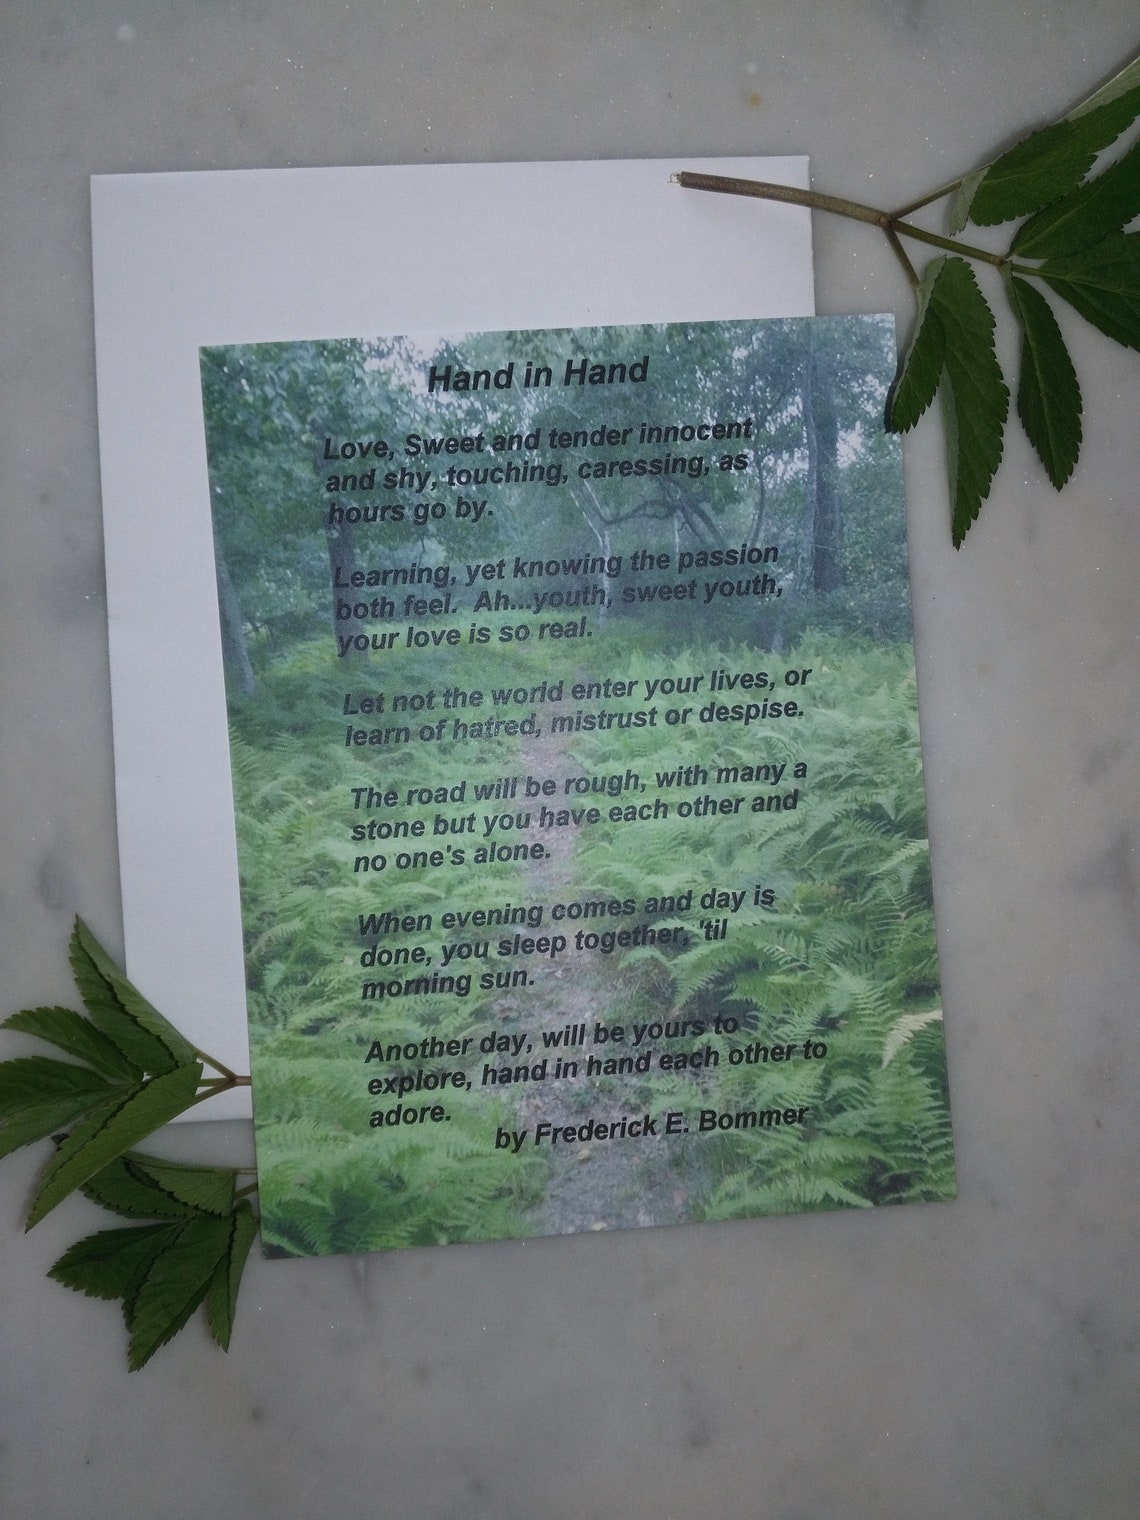 Hand in Hand
Love, Sweet and tender innocent
and shy, touching, caressing, as
hours go by.
Learning, yet knowing the passion
both feel.  Ah...youth, sweet youth,
your love is so real.
Let not the world enter your lives, or
learn of hatred, mistrust or despise.
The road will be rough, with many a
stone but you have each other and
no one's alone.
When evening comes and day is
done, you sleep together, 'til
morning sun.
Another day, will be yours to
explore, hand in hand each other to
adore.
by Frederick E. Bommer